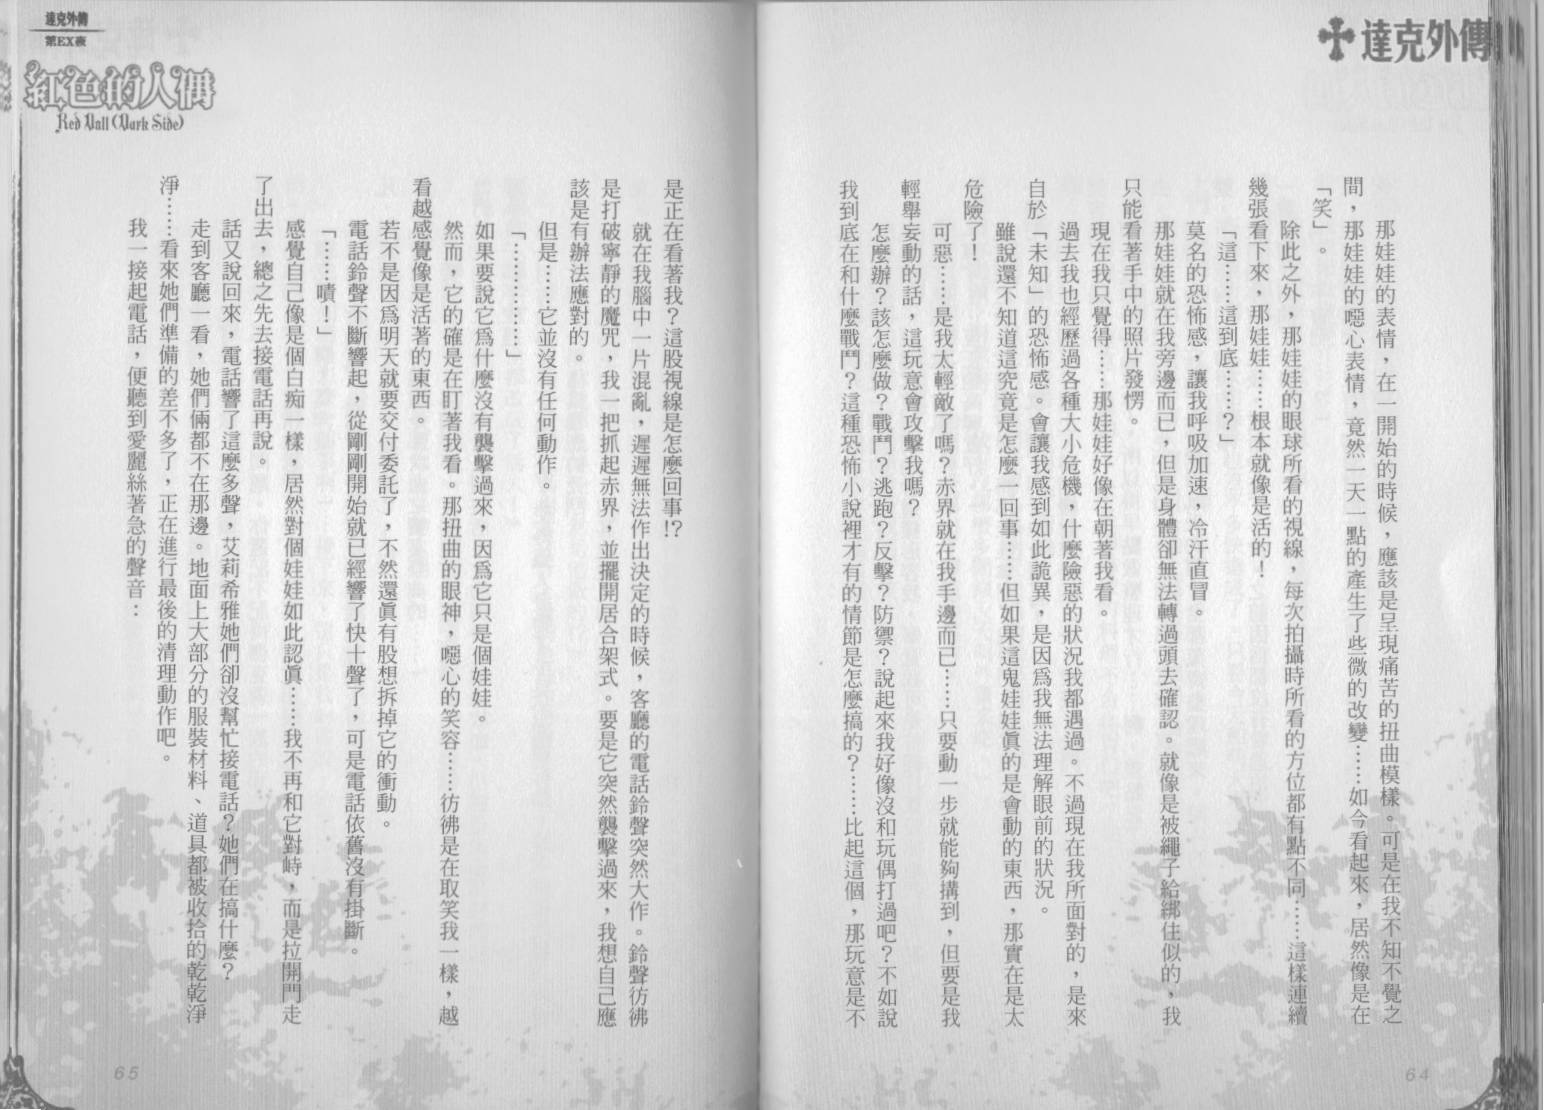 達克外傳
那娃娃的表情，在一開始的時候，應該是呈現痛苦的扭曲模樣。可是在我不知不覺之
間，那娃娃的噁心表情，竟然一天一點的產生了些微的改變……如今看起來，居然像是在
「笑」。
除此之外，那娃娃的眼球所看的視線，每次拍攝時所看的方位都有點不同……這樣連續
幾張看下來，那娃娃……根本就像是活的！
「這……這到底……？」
莫名的恐怖感，讓我呼吸加速，冷汗直冒。
那娃娃就在我旁邊而已，但是身體卻無法轉過頭去確認。就像是被繩子給綁住似的，我
只能看著手中的照片發愣。
現在我只覺得……那娃娃好像在朝著我看。
過去我也經歷過各種大小危機，什麼險惡的狀況我都遇過。不過現在我所面對的，是來
自於「未知」的恐怖感。會讓我感到如此詭異，是因為我無法理解眼前的狀況。
雖說還不知道這究竟是怎麼一回事……但如果這鬼娃娃真的是會動的東西，那實在是太
危險了！
可惡……是我太輕敵了嗎？赤界就在我手邊而已……只要動一步就能夠搆到，但要是我
輕舉妄動的話，這玩意會攻擊我嗎？
怎麼辦？該怎麼做？戰鬥？逃跑？反擊？防禦？說起來我好像沒和玩偶打過吧？不如說
我到底在和什麼戰鬥？這種恐怖小說裡才有的情節是怎麼搞的？……比起這個，那玩意是不
64
達克外傳
第EX夜
紅色的人偶
Red Doll (Dark Side)
是正在看著我？這股視線是怎麼回事！？
就在我腦中一片混亂，遲遲無法作出決定的時候，客廳的電話鈴聲突然大作。鈴聲彷彿
是打破寧靜的魔咒，我一把抓起赤界，並擺開居合架式。要是它突然襲擊過來，我想自己應
該是有辦法應對的。
但是……它並沒有任何動作。
「……………」
如果要說它為什麼沒有襲擊過來，因為它只是個娃娃。
然而，它的確是在盯著我看。那扭曲的眼神，噁心的笑容……彷彿是在取笑我一樣，越
看越感覺像是活著的東西。
若不是因為明天就要交付委託了，不然還真有股想拆掉它的衝動。
電話鈴聲不斷響起，從剛剛開始就已經響了快十聲了，可是電話依舊沒有掛斷。
「……嘖！」
感覺自己像是個白痴一樣，居然對個娃娃如此認真……我不再和它對峙，而是拉開門走
了出去，總之先去接電話再說。
話又說回來，電話響了這麼多聲，艾莉希雅她們卻沒幫忙接電話？她們在搞什麼？
走到客廳一看，她們倆都不在那邊。地面上大部分的服裝材料、道具都被收拾的乾乾淨
淨……看來她們準備的差不多了，正在進行最後的清理動作吧。
我一接起電話，便聽到愛麗絲著急的聲音：
65